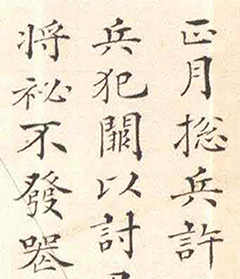 正月捴兵許
兵犯闕以討
将祕不發罂